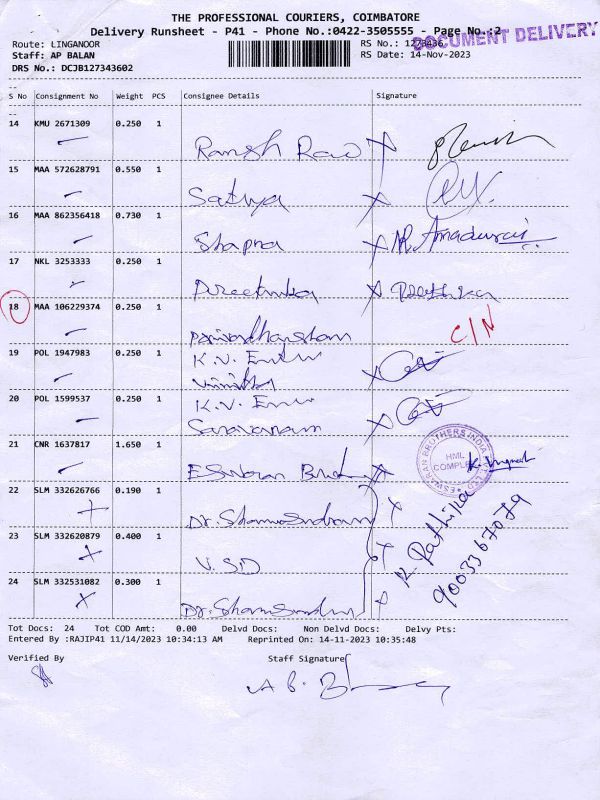 THE PROFESSIONAL COURIERS, COIMBATORE
Delivery Runsheet - P41 - Phone No.:0422-3505555 - Page No.:2
DOCUMENT DELIVERY
Route: LINGANOOR
RS No.: 1273436
Staff: AP BALAN
RS Date: 14-Nov-2023
DRS No.: DCJB127343602
S No Consignment No Weight PCS Consignee Details Signature
14 KMU 2671309 0.250 1
Ramesh Rao X
15 MAA 572628791 0.550 1
Sathya X
16 MAA 862356418 0.730 1
Shapna X
17 NKL 3253333 0.250 1
Preethika X
18 MAA 106229374 0.250 1
C/N
19 POL 1947983 0.250 1
K.V. X
20 POL 1599537 0.250 1
K.V.
Saravanam X
21 CNR 1637817 1.650 1
Eswaran X
ESWARAN BROTHERS INDIA
HML
COMPLEX
22 SLM 332626766 0.190 1
X Dr. X
23 SLM 332620879 0.400 1
X V.SD X
24 SLM 332531082 0.300 1
X Dr. X
K. Rathika
9003367079
Tot Docs: 24 Tot COD Amt: 0.00 Delvd Docs: Non Delvd Docs: Delvy Pts:
Entered By :RAJIP41 11/14/2023 10:34:13 AM Reprinted On: 14-11-2023 10:35:48
Verified By Staff Signature